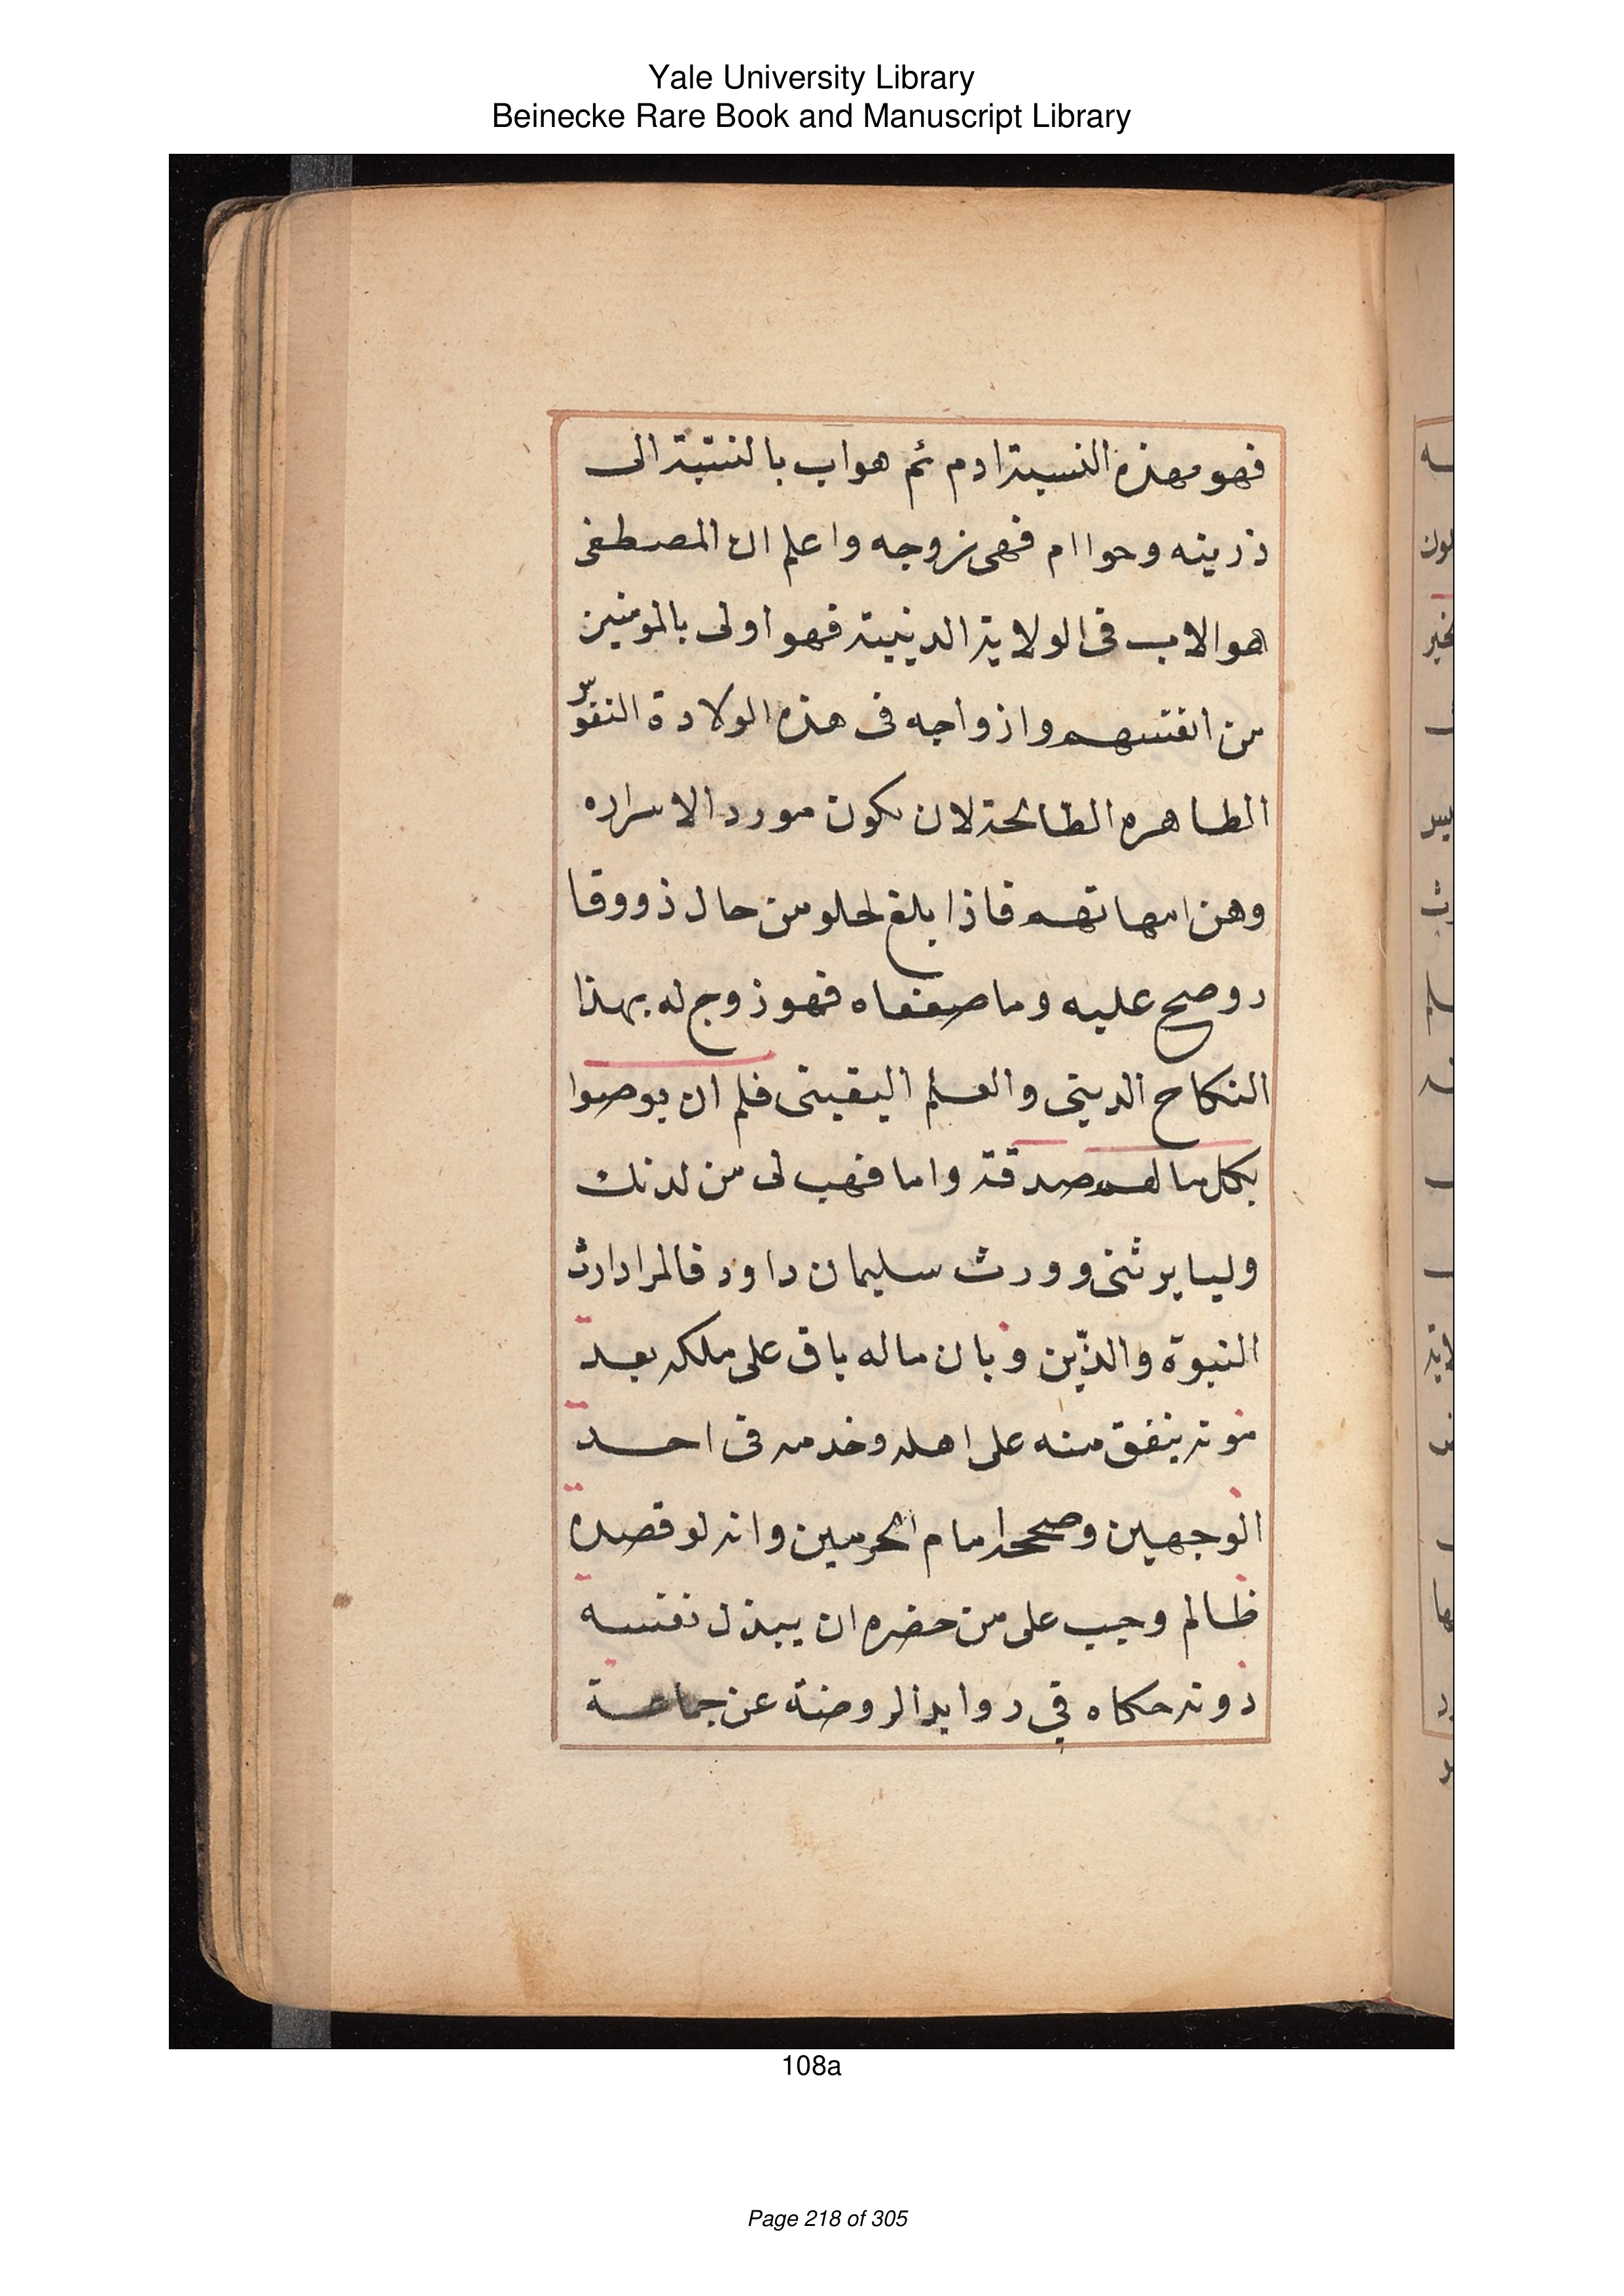 Yale University Library
Beinecke Rare Book and Manuscript Library
فهو مهذه النسبة ادم ثم هو اب بالنسبة الى
ذريته وحوا ام فهى زوجه واعلم ان المصطفى
هو الاب فى الولاية الدينية فهو اولى بالمومنين
من انفسهم وازواجه فى هذه الولادة النفو
الطاهره الطالحة لان يكون مورد الاسراره
وهن امهاتهم فاذا بلغ لحلو من حال ذووقا
ردوصح عليه وما صفعاه فهو زوج له بهذا
النكاح الدينى والعلم اليقينى فلم ان يوصوا
بكل مالهم صدقة واما فهب لى من لدنك
وليا يرثنى وورث سليمان داود فالمراد ارث
النبوة والدّين وبان ماله باق على ملكه بعد
موته ينفق منه على اهله وخدمه فى احد
الوجهين وصححه امام الحرمين وانه لو قصده
ظالم وجب على من حضره ان يبذل نفسه
دونه حكاه في روايد الروضة عن جماعة
108a
Page 218 of 305